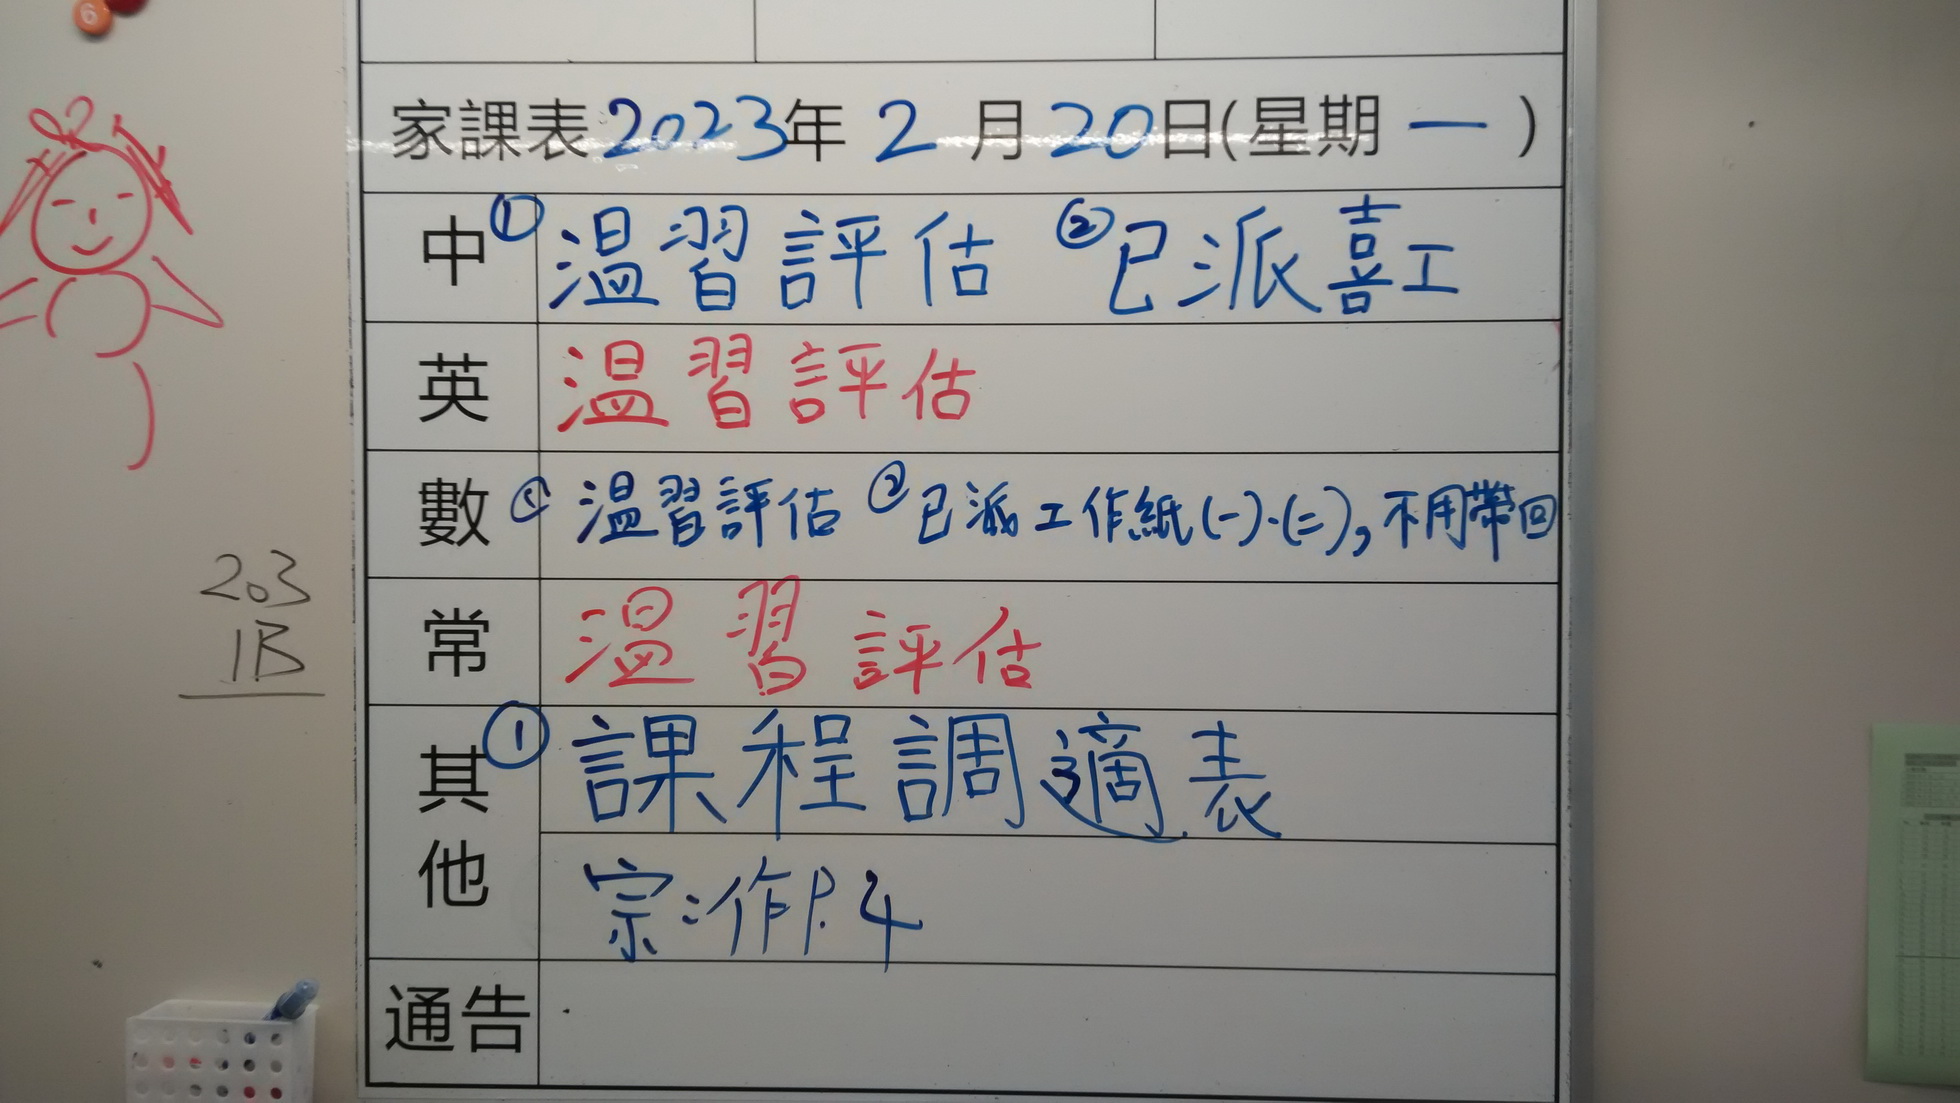 6
家課表2023年 2 月 20日(星期 一 )
中 ①溫習評估 ②已派喜工
英 溫習評估
數 ①溫習評估 ②已派工作紙(一)·(二),不用帶回
常 溫習評估
其他 ①課程調適表
宗:作P.4
通告
203
1B